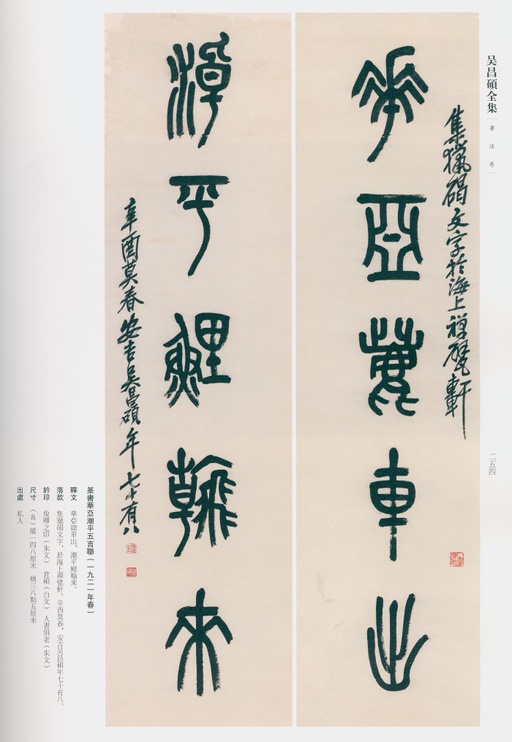 吴昌碩全集
書法卷
二五四
集獵碣文字於海上禪甓軒
華亞麗車出
潮平鯉翰來
辛酉莫春安吉吳昌碩年七十有八
篆書華亞潮平五言聯(一九二一年春)
釋文 華亞麗車出,潮平鯉翰來。
落款 集獵碣文字,於海上禪甓軒。辛酉莫春,安吉吳昌碩年七十有八。
鈐印 俊卿之印(朱文) 倉碩(白文) 人書俱老(朱文)
尺寸 (各)縱一四八厘米 橫三八點五厘米
出處 私人